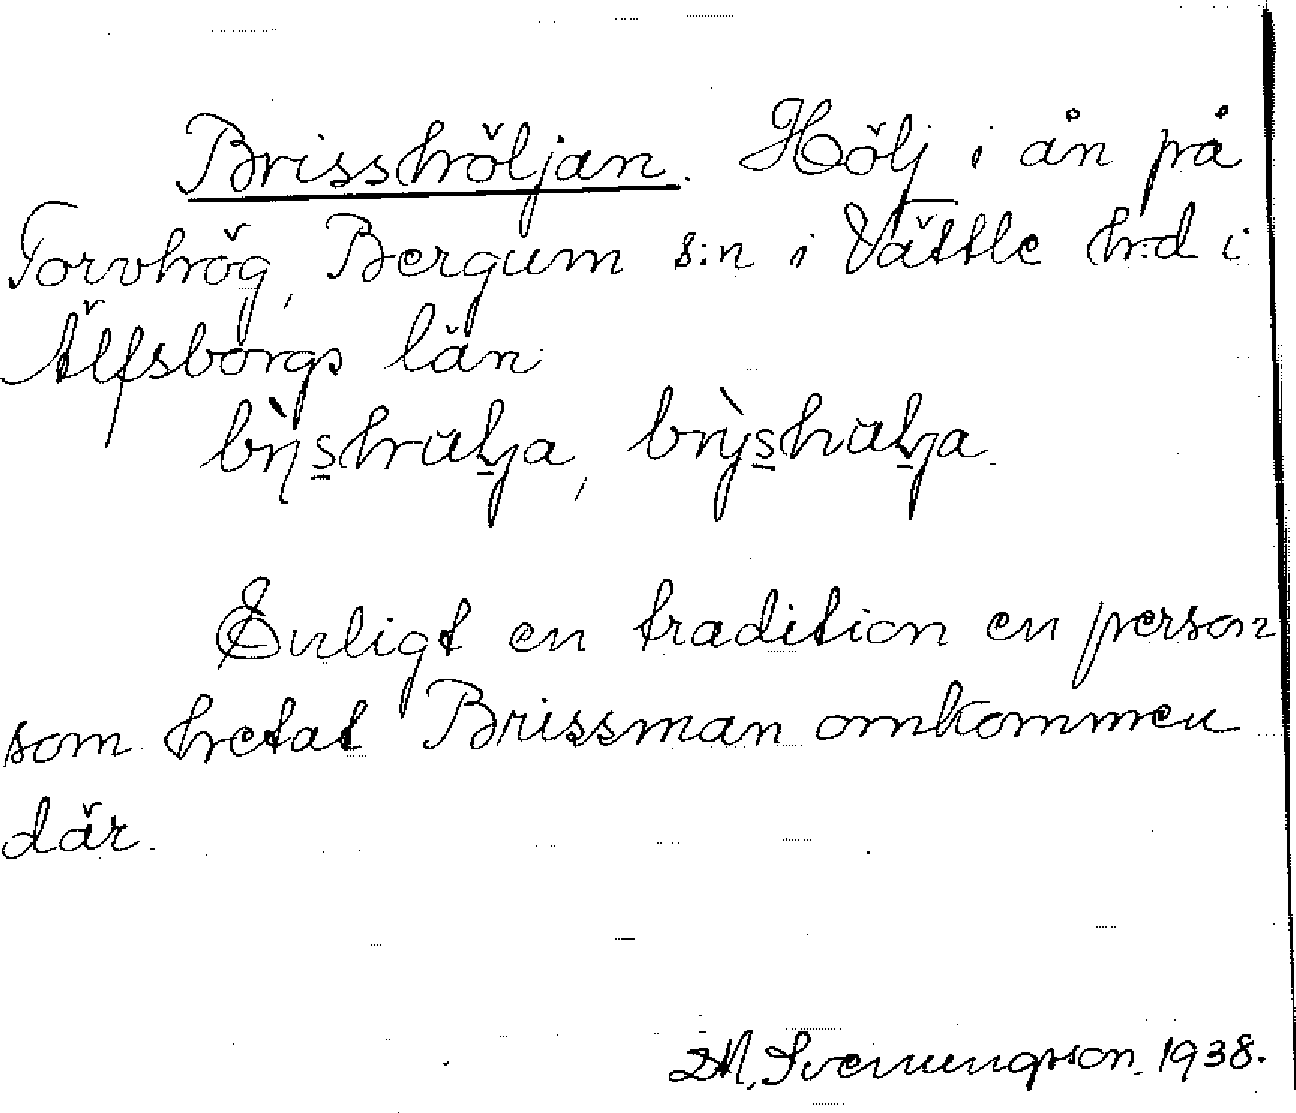 Brisshöljan. Hölj i ån på
Torvhög, Bergum s:n i Vättle hd i
Älfsborgs län
Enligt en tradition en person
som hetat Brissman omkommen
där.
Svenungsson. 1938.